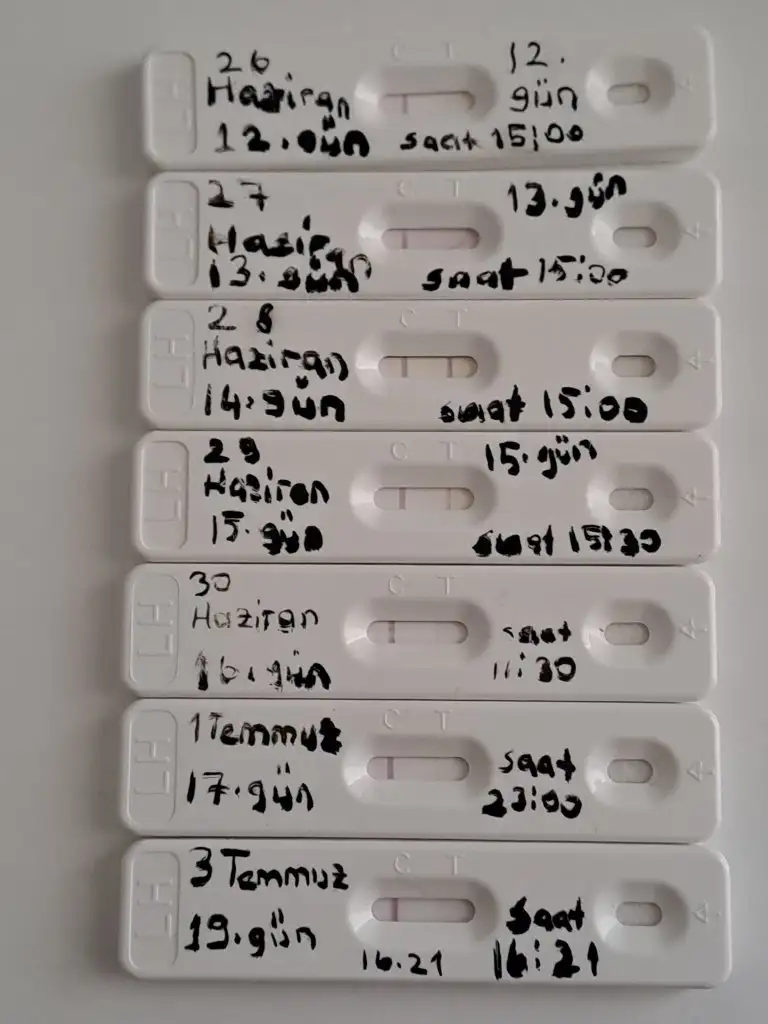 LH
26
Haziran
12.gün
C T
12.
gün
saat 15:00
LH
27
Hazir
an
13.gün
C T
13.gün
saat 15:00
LH
28
Haziran
14.gün
C T
saat 15:00
LH
29
Haziran
15.gün
C T
15.gün
saat 15:30
LH
30
Haziran
16.gün
C T
saat
11:30
LH
1 Temmuz
17.gün
C T
saat
23:00
LH
3 Temmuz
19.gün
C T
16.21
saat
16:21